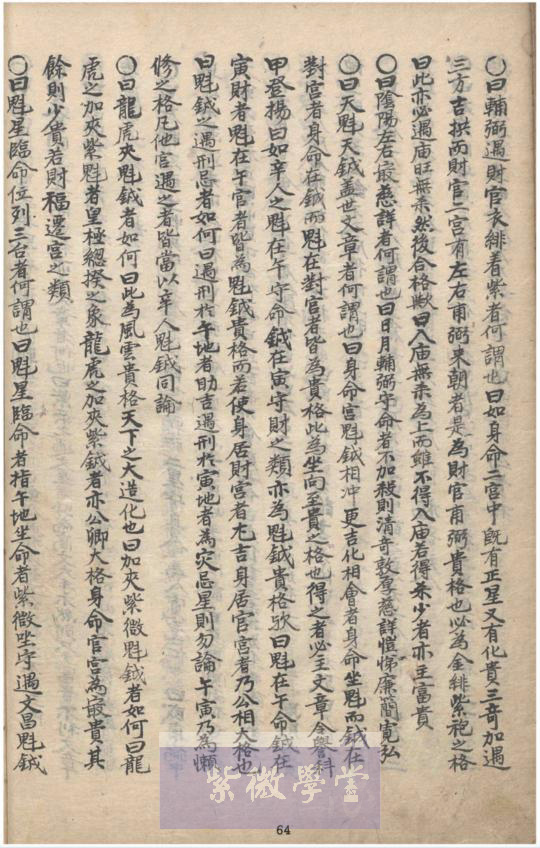 〇曰輔弼遇財官衣緋着紫者何謂也曰如身命二宮中既有正星又有化貴三奇加遇
三方吉拱而財官二宮有左右甫弼来朝者是為財官甫弼貴格也必為金緋紫袍之格
曰此亦必遇庙旺無杀然後合格欤曰入庙無杀為上而雖不得入庙若得杀少者亦主富貴
〇曰陰陽左右最慈詳者何謂也曰日月輔弼守命者不加殺則清奇敦厚慈詳愷悌廉簡寛弘
〇曰天魁天鉞盖世文章者何謂也曰身命宮魁鉞相冲更吉化相會者身命坐魁而鉞在
對宮者身命在鉞而魁在對宮者皆為貴格此為坐向至貴之格也得之者必主文章令譽科
甲登揚曰如辛人之魁在午守命鉞在寅守財之類亦為魁鉞貴格欤曰魁在午命鉞在
寅財者魁在午官者皆為魁鉞貴格而若使身居財宮者尤吉身居官宮者乃公相大格也
曰魁鉞之遇刑忌者如何曰遇刑於午地者助吉遇刑於寅地者為灾忌星則勿論午寅乃為懶
修之格凡他宮遇之者皆當以辛人魁鉞同論
〇曰龍虎夾魁鉞者如何曰此為風雲貴格天下之大造化也曰加夾紫微魁鉞者如何曰龍
虎之加夾紫魁者皇極總揆之象龍虎之加夾紫鉞者亦公卿大格身命官宮為最貴其
餘則少貴若財福遷宮之類
〇曰魁星臨命位列三台者何謂也曰魁星臨命者指午地坐命者紫微坐守遇文昌魁鉞
紫微學堂
64